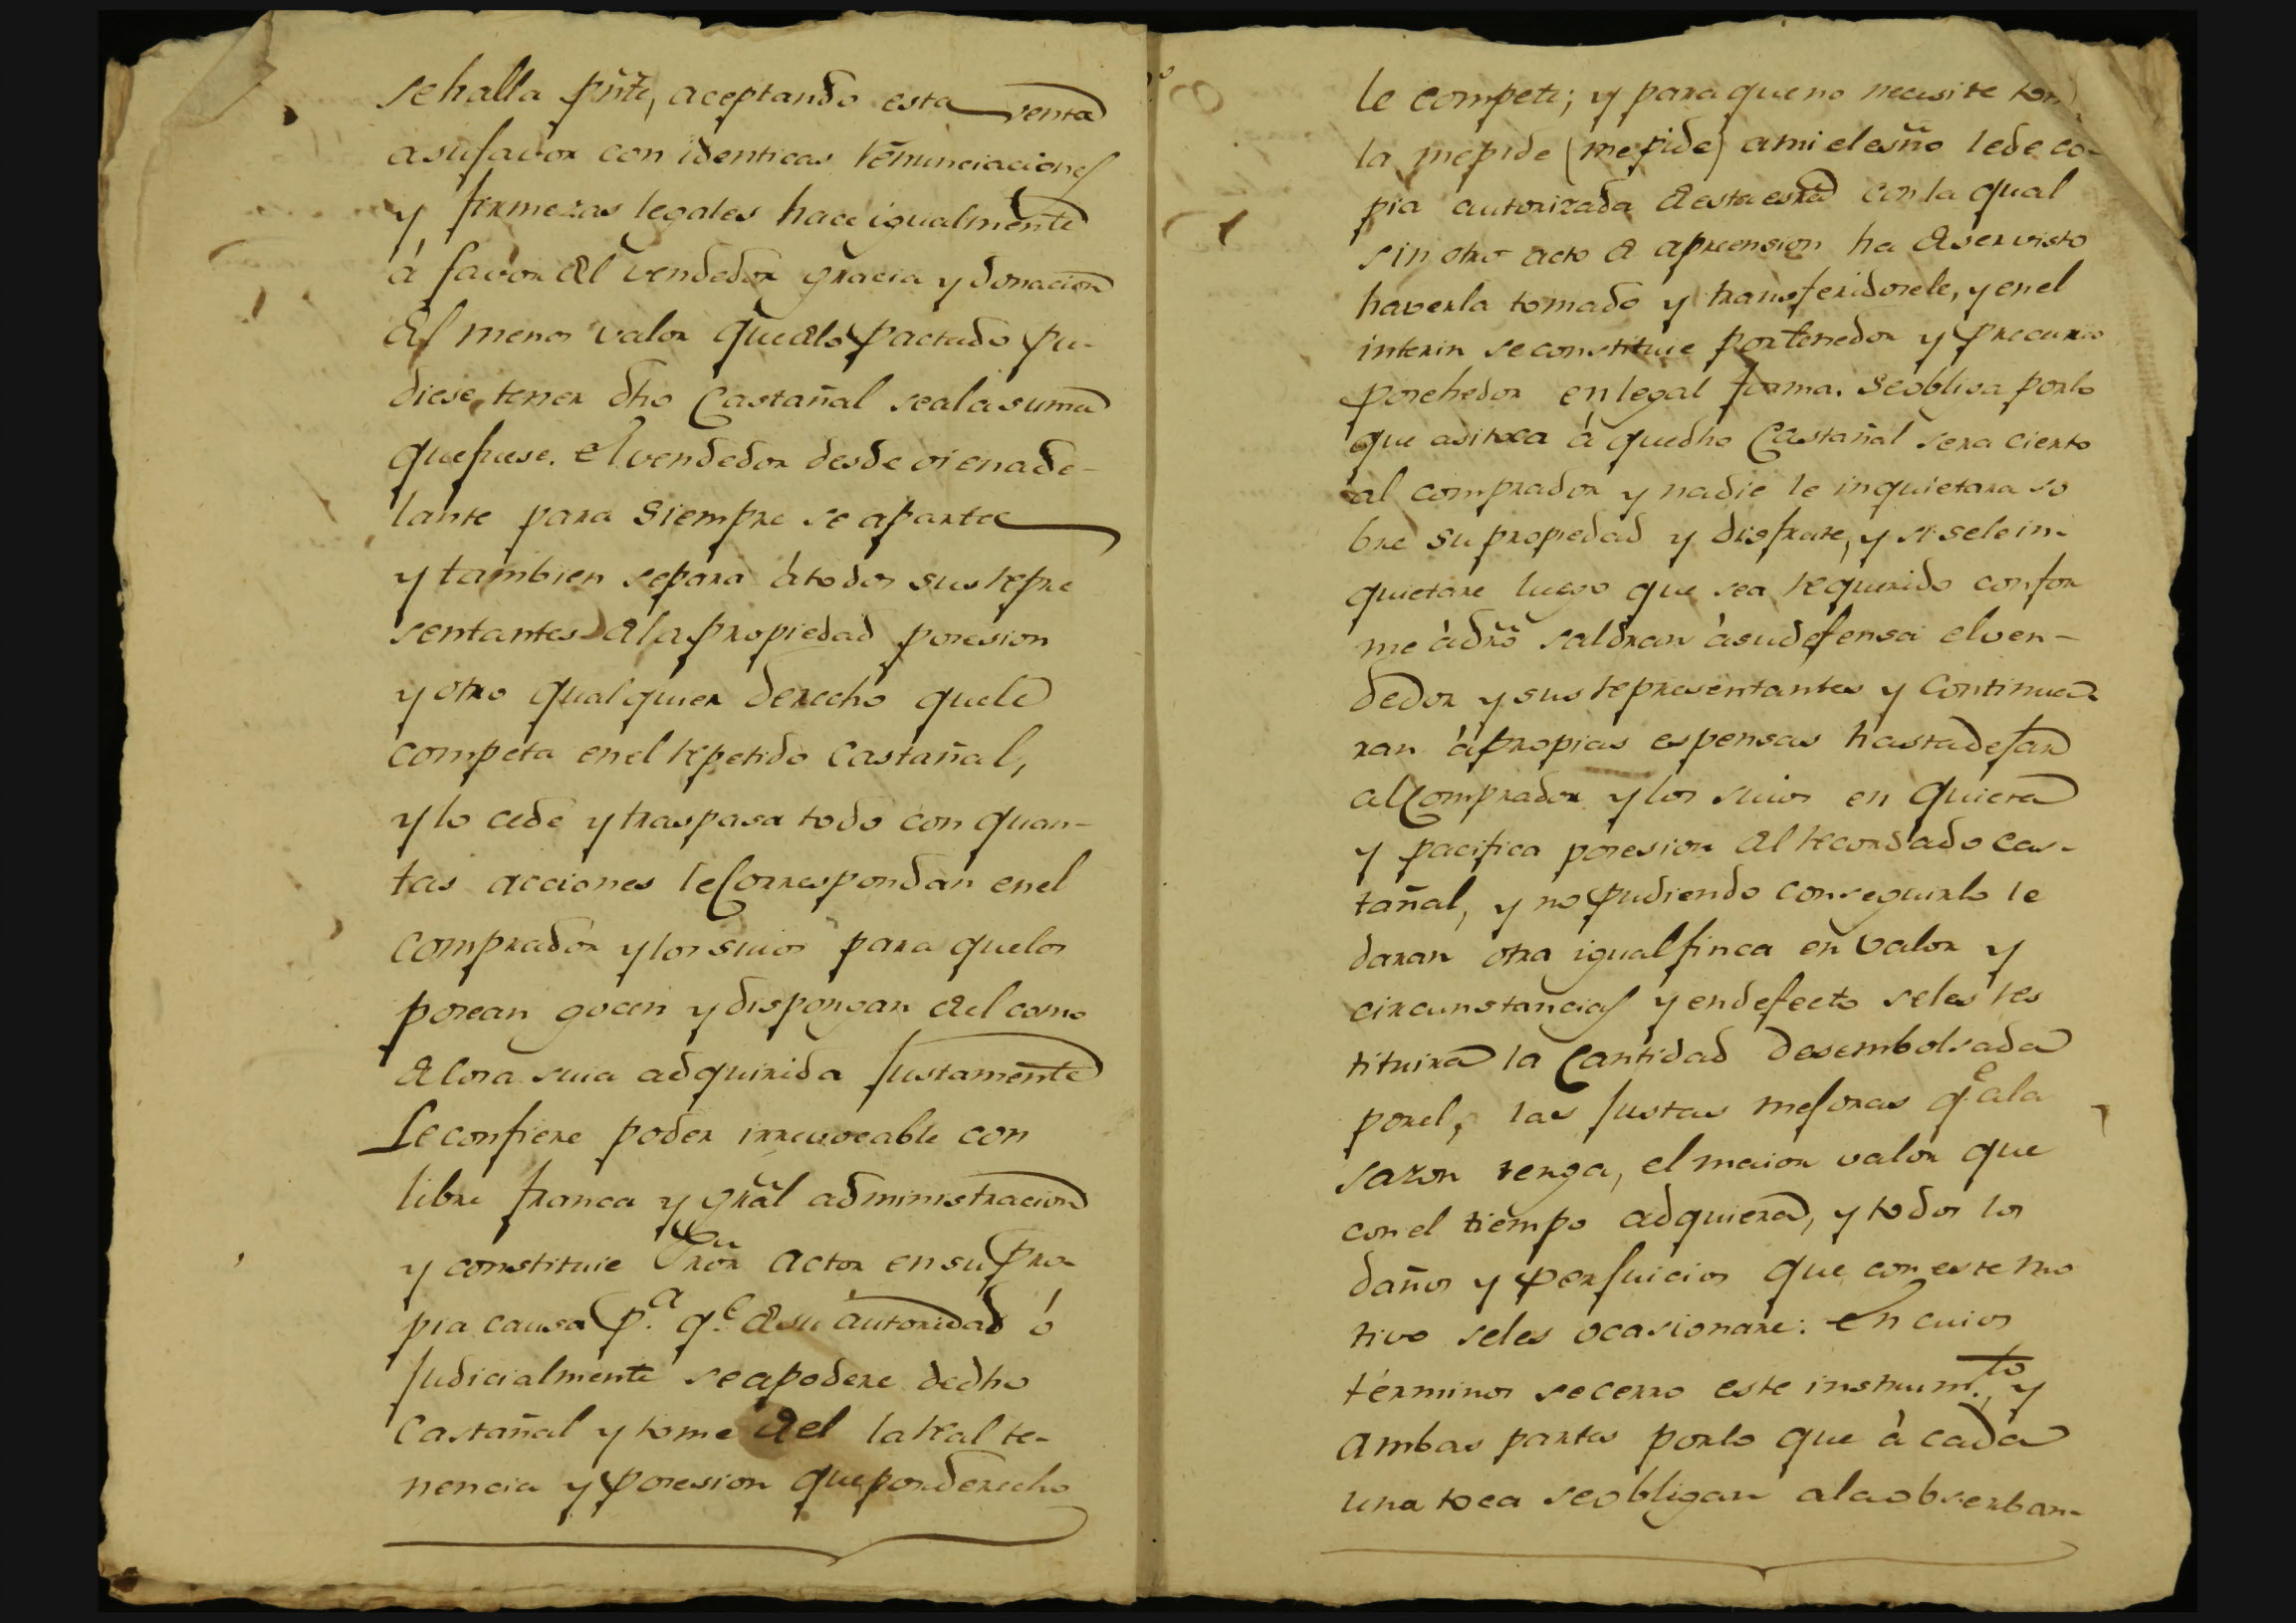 se halla pñte, aceptando esta venta
a su favor con identicas renunciaciones
y firmezas legales hace igualmente
á favor del vendedor gracia y donacion
del menor valor que de lo pactado pu-
diese tener dho Castañal sea la suma
que fuese. el vendedor desde oi en ade-
lante para siempre se aparta
y tambien separa á todos sus repre
sentantes de la propiedad posesion
y otro qualquier derecho que le
competa en el repetido Castañal,
y lo cede y traspasa todo con quan-
tas acciones le Correspondan en el
comprador y los suios para que los
posean gocen y dispongan del como
de cosa suia adquirida Justamente
Le confiere poder irrevocable con
libre franca y gral administracion
y constituie Puror actor en su pro
pia causa p.a q.e de su autoridad ó
Judicialmente se apodere de dho
Castañal y tome del la real te-
nencia y posesion que por derecho
le compete; y para que no necesite tom
la mepide (me pide) a mi el esño le de co-
pia autorizada de esta esrã con la qual
sin otro acto de aprension ha de ser visto
haverla tomado y transferidosele, y en el
interin se constituie por tenedor y precario
posehedor en legal forma. Se obliga por lo
que asi toca á que dho Castañal sera cierto
al comprador y nadie le inquietara so
bre su propiedad y disfrute, y si se le in-
quietare luego que sea requerido confor
me á dro saldran á su defensa el ven-
dedor y sus representantes y Continua
ran á propias espensas hasta defar
al Comprador y los suios en quieta
y pacifica posesion del recordado cas-
tañal, y no pudiendo conseguirlo le
daran otra igual finca en valor y
circunstancias y en defecto se les res
tituira la Cantidad desembolsada
por el, las Justas mejoras q.e a la
sazon tenga, el maior valor que
con el tiempo adquiera, y todos los
daños y perjuicios que con este mo
tivo se les ocasionare: en cuios
términos se cerro este instrum.to, y
ambas partes por lo que á cada
una toca se obligan a la obserban-